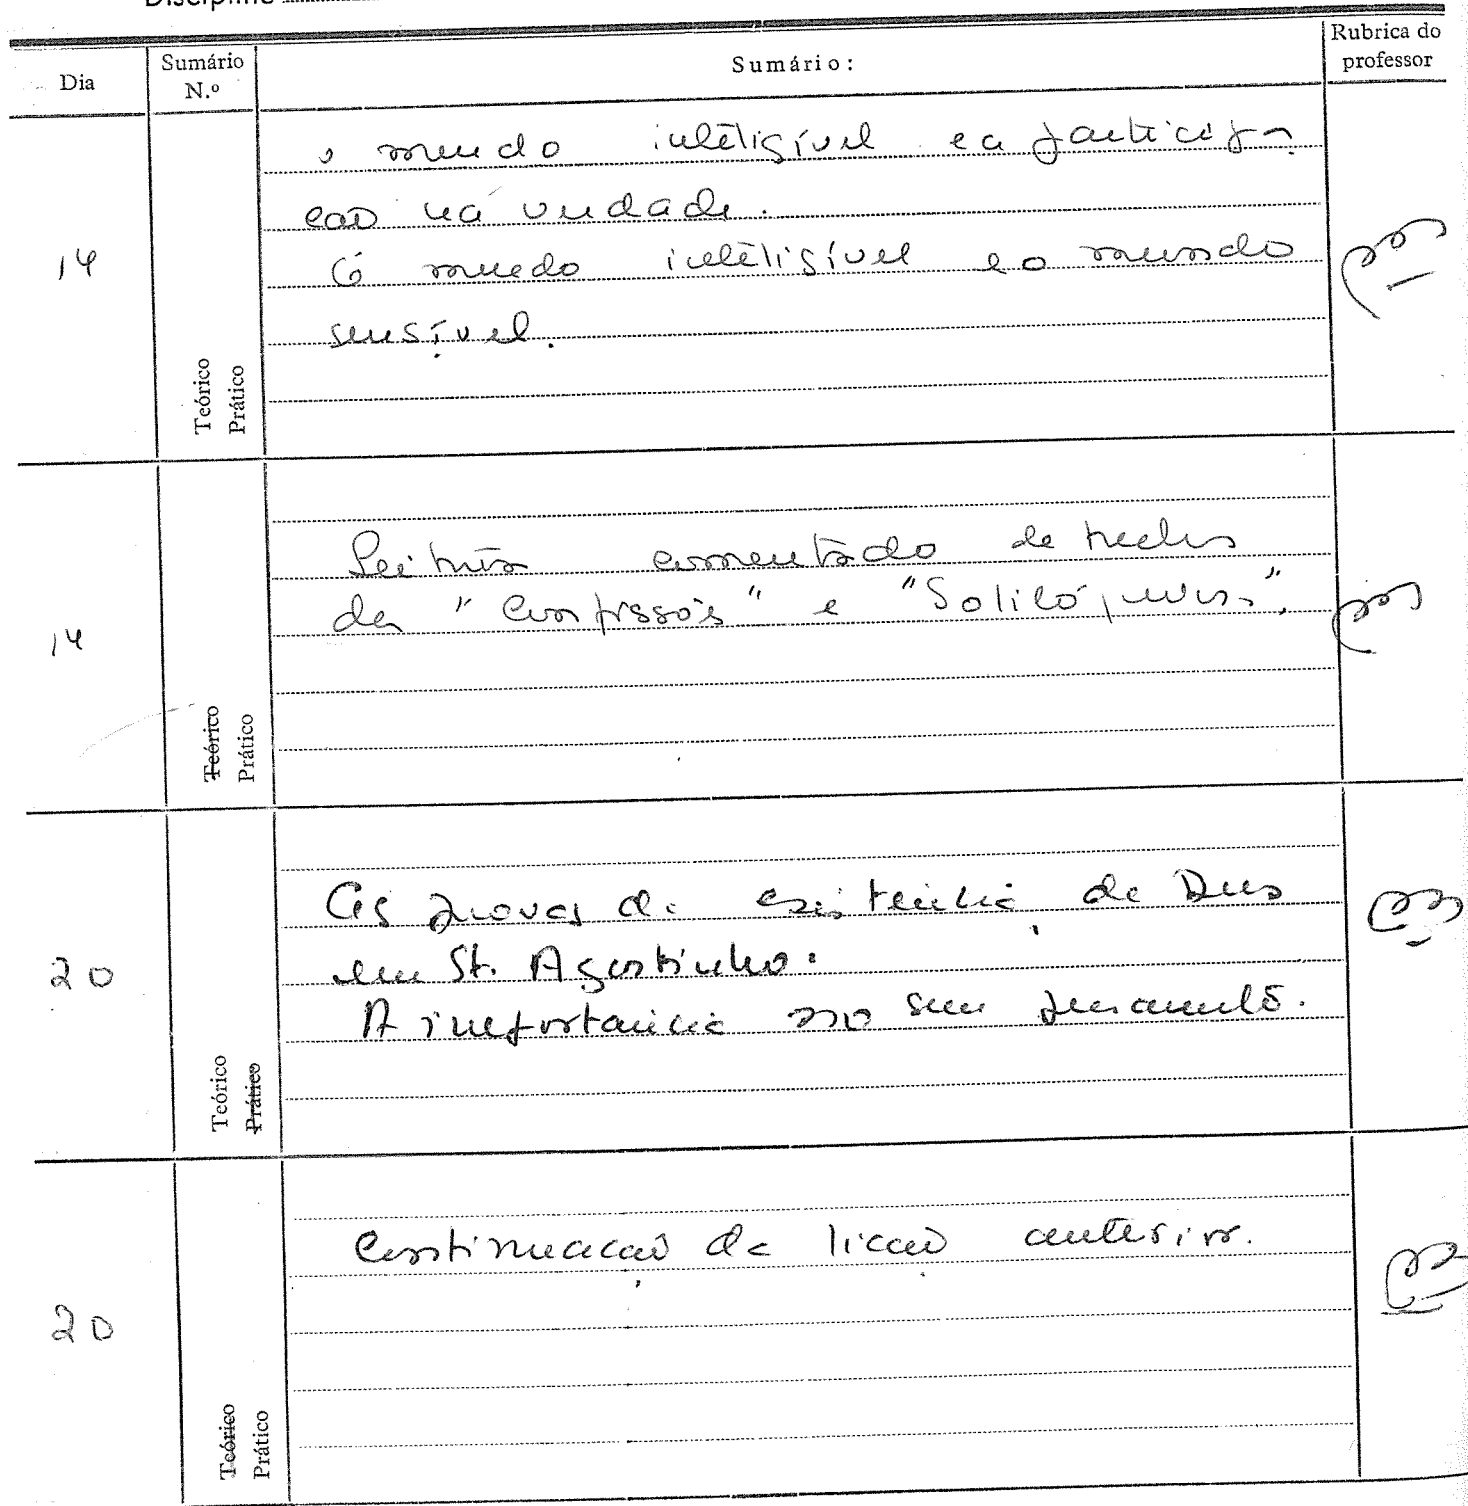 Dia
Sumário N.º
Sumário:
Rubrica do professor
14
o mundo inteligível e a participa-
ção na verdade.
O mundo inteligível e o mundo
sensível.
Teórico
Prático
14
Leitura comentado de trechos
das "Confissões" e "Solilóquios".
Teórico
Prático
20
As provas da existência de Deus
em St. Agostinho.
A importância no seu pensamento.
Teórico
Prático
20
Continuação da lição anterior.
Teórico
Prático